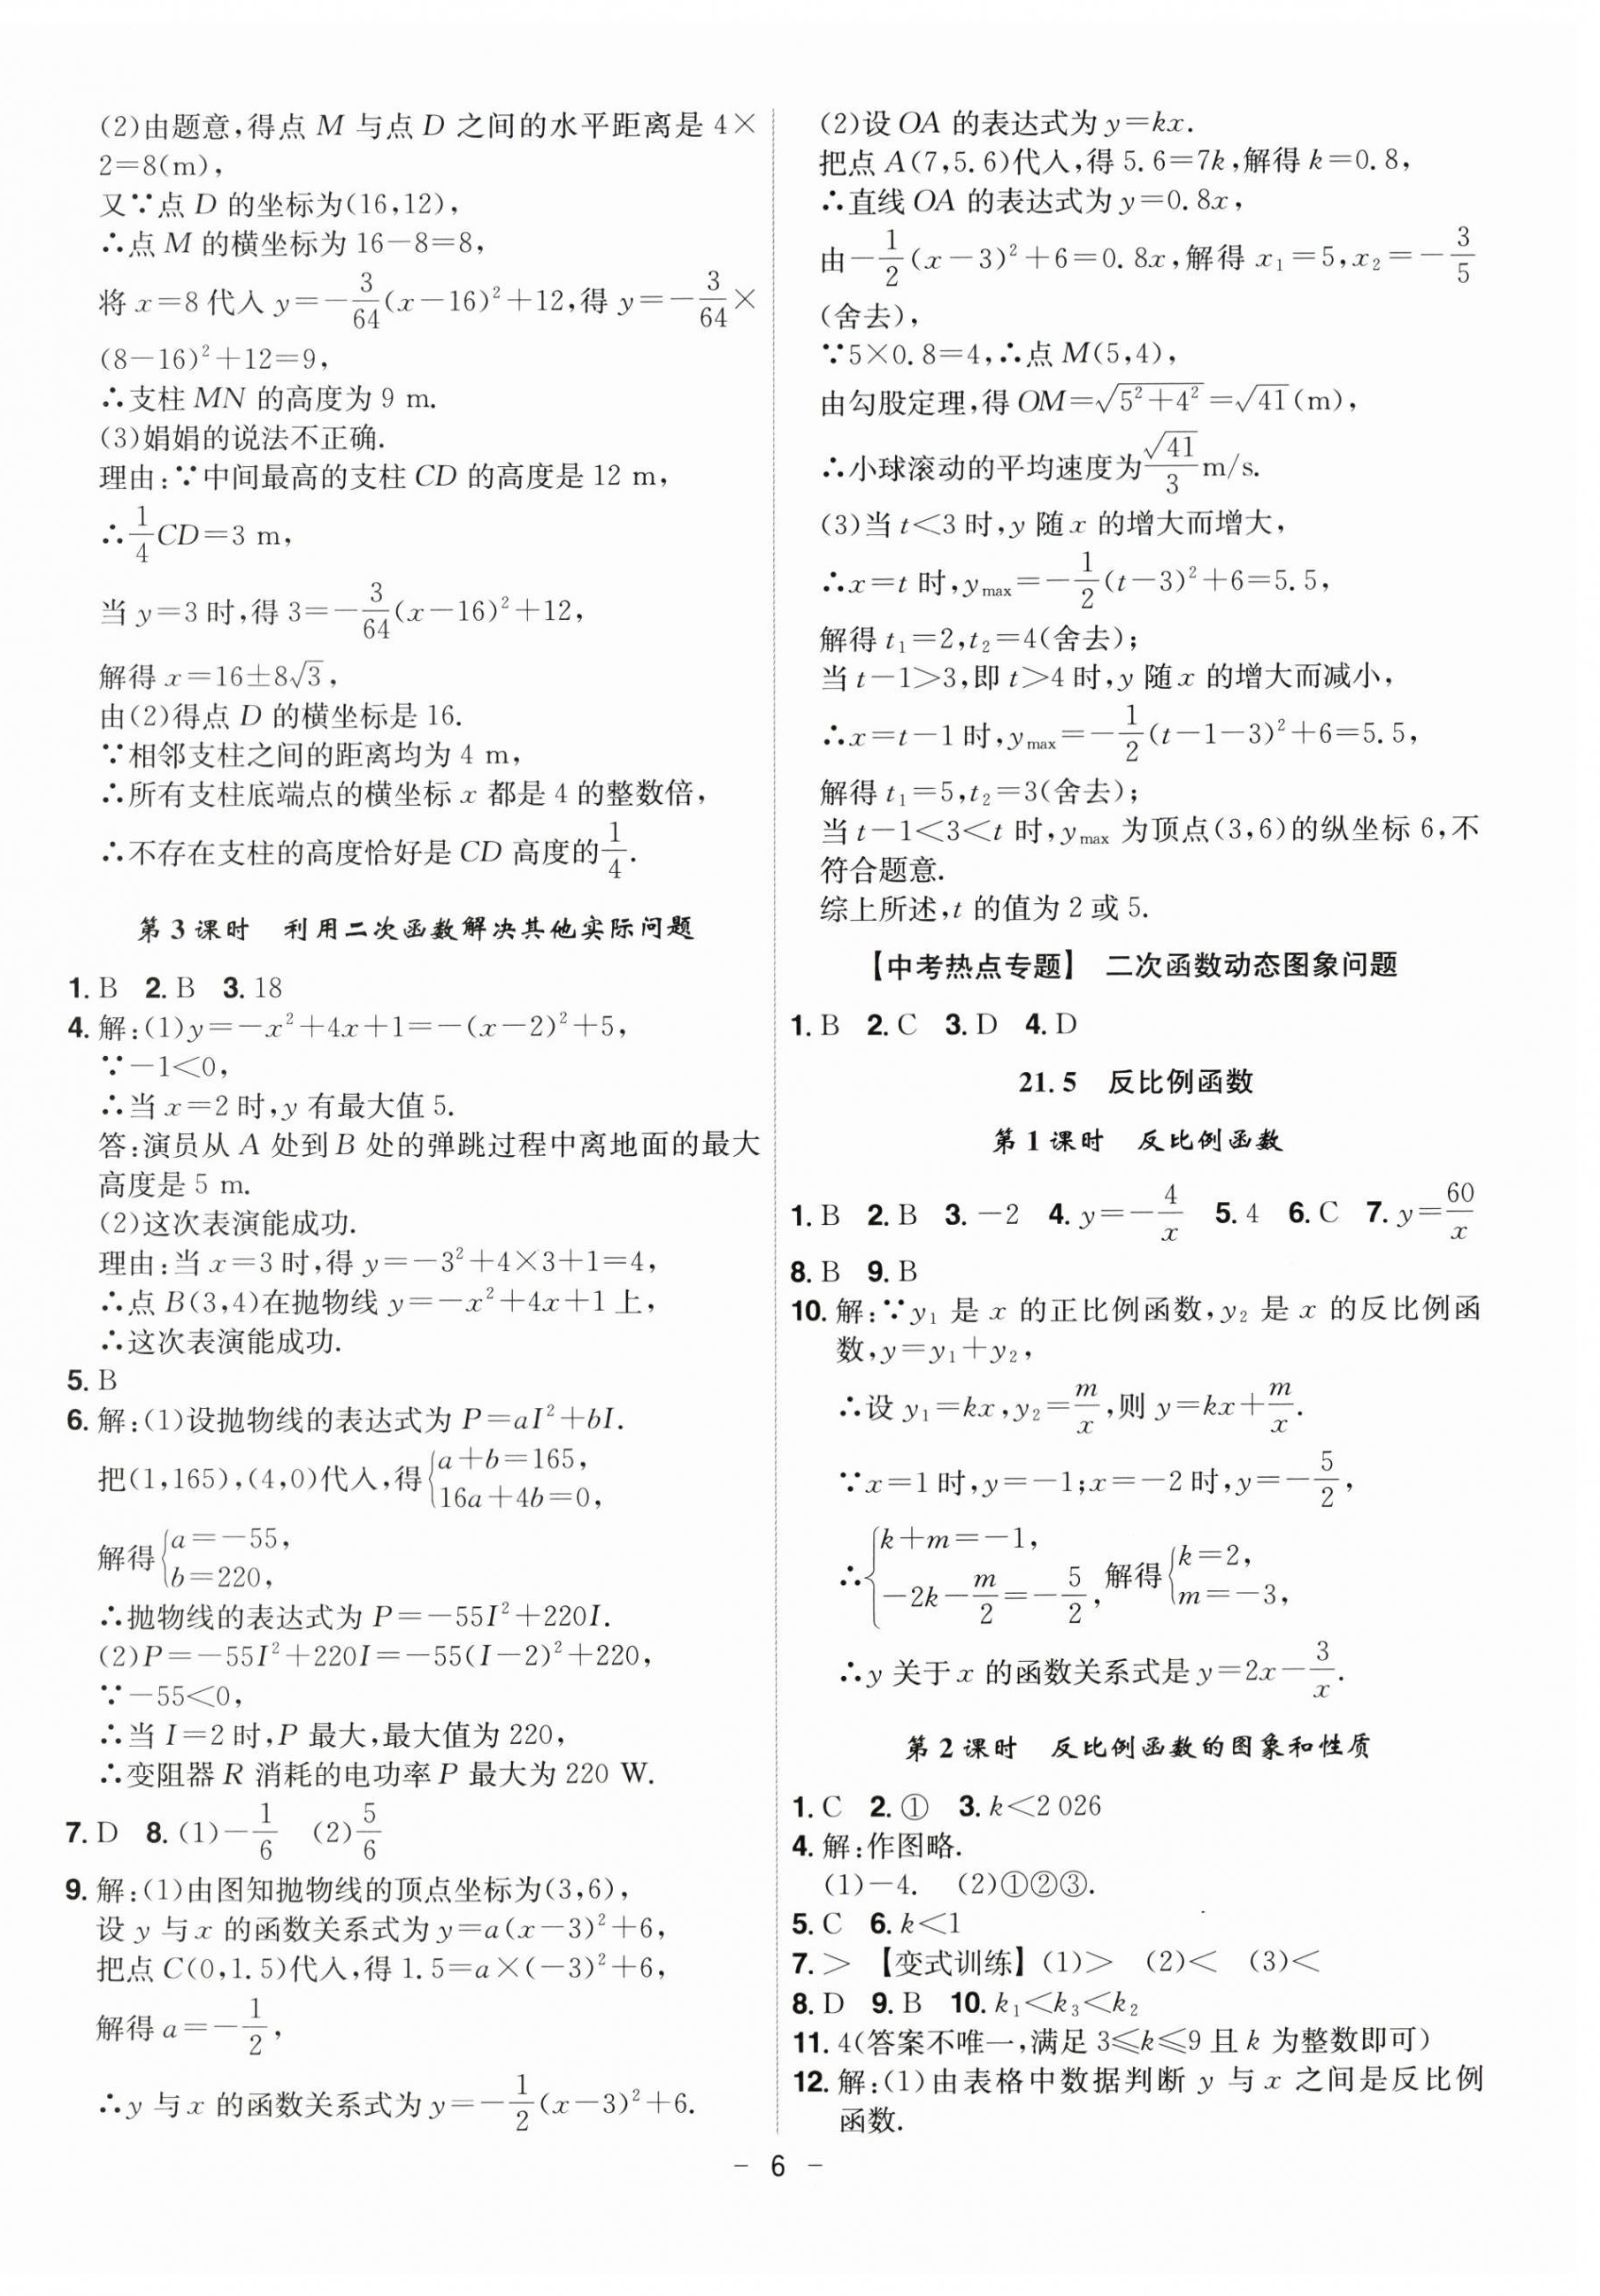 (2)由题意,得点 M 与点 D 之间的水平距离是 4×
2=8(m),
又∵点 D 的坐标为(16,12),
∴点 M 的横坐标为 16-8=8,
将 x=8 代入 y=-3/64(x-16)²+12,得 y=-3/64×
(8-16)²+12=9,
∴支柱 MN 的高度为 9 m.
(3)娟娟的说法不正确.
理由:∵中间最高的支柱 CD 的高度是 12 m,
∴1/4CD=3 m,
当 y=3 时,得 3=-3/64(x-16)²+12,
解得 x=16±8√3,
由(2)得点 D 的横坐标是 16.
∵相邻支柱之间的距离均为 4 m,
∴所有支柱底端点的横坐标 x 都是 4 的整数倍,
∴不存在支柱的高度恰好是 CD 高度的1/4.
第 3 课时 利用二次函数解决其他实际问题
1. B 2. B 3. 18
4. 解:(1)y=-x²+4x+1=-(x-2)²+5,
∵-1<0,
∴当 x=2 时,y 有最大值 5.
答:演员从 A 处到 B 处的弹跳过程中离地面的最大
高度是 5 m.
(2)这次表演能成功.
理由:当 x=3 时,得 y=-3²+4×3+1=4,
∴点 B(3,4)在抛物线 y=-x²+4x+1 上,
∴这次表演能成功.
5. B
6. 解:(1)设抛物线的表达式为 P=aI²+bI.
把(1,165),(4,0)代入,得{a+b=165,
16a+4b=0,
解得{a=-55,
b=220,
∴抛物线的表达式为 P=-55I²+220I.
(2)P=-55I²+220I=-55(I-2)²+220,
∵-55<0,
∴当 I=2 时,P 最大,最大值为 220,
∴变阻器 R 消耗的电功率 P 最大为 220 W.
7. D 8. (1)-1/6 (2)5/6
9. 解:(1)由图知抛物线的顶点坐标为(3,6),
设 y 与 x 的函数关系式为 y=a(x-3)²+6,
把点 C(0,1.5)代入,得 1.5=a×(-3)²+6,
解得 a=-1/2,
∴y 与 x 的函数关系式为 y=-1/2(x-3)²+6.
(2)设 OA 的表达式为 y=kx.
把点 A(7,5.6)代入,得 5.6=7k,解得 k=0.8,
∴直线 OA 的表达式为 y=0.8x,
由-1/2(x-3)²+6=0.8x,解得 x₁=5,x₂=-3/5
(舍去),
∵5×0.8=4,∴点 M(5,4),
由勾股定理,得 OM=√(5²+4²)=√41(m),
∴小球滚动的平均速度为√41/3 m/s.
(3)当 t<3 时,y 随 x 的增大而增大,
∴x=t 时,yₘₐₓ=-1/2(t-3)²+6=5.5,
解得 t₁=2,t₂=4(舍去);
当 t-1>3,即 t>4 时,y 随 x 的增大而减小,
∴x=t-1 时,yₘₐₓ=-1/2(t-1-3)²+6=5.5,
解得 t₁=5,t₂=3(舍去);
当 t-1<3<t 时,yₘₐₓ 为顶点(3,6)的纵坐标 6,不
符合题意.
综上所述,t 的值为 2 或 5.
【中考热点专题】 二次函数动态图象问题
1. B 2. C 3. D 4. D
21.5 反比例函数
第 1 课时 反比例函数
1. B 2. B 3. -2 4. y=-4/x 5. 4 6. C 7. y=60/x
8. B 9. B
10. 解:∵y₁ 是 x 的正比例函数,y₂ 是 x 的反比例函
数,y=y₁+y₂,
∴设 y₁=kx,y₂=m/x,则 y=kx+m/x.
∵x=1 时,y=-1;x=-2 时,y=-5/2,
∴{k+m=-1,
-2k-m/2=-5/2, 解得{k=2,
m=-3,
∴y 关于 x 的函数关系式是 y=2x-3/x.
第 2 课时 反比例函数的图象和性质
1. C 2. ① 3. k<2 026
4. 解:作图略.
(1)-4. (2)①②③.
5. C 6. k<1
7. > 【变式训练】(1)> (2)< (3)<
8. D 9. B 10. k₁<k₃<k₂
11. 4(答案不唯一,满足 3≤k≤9 且 k 为整数即可)
12. 解:(1)由表格中数据判断 y 与 x 之间是反比例
函数.
- 6 -